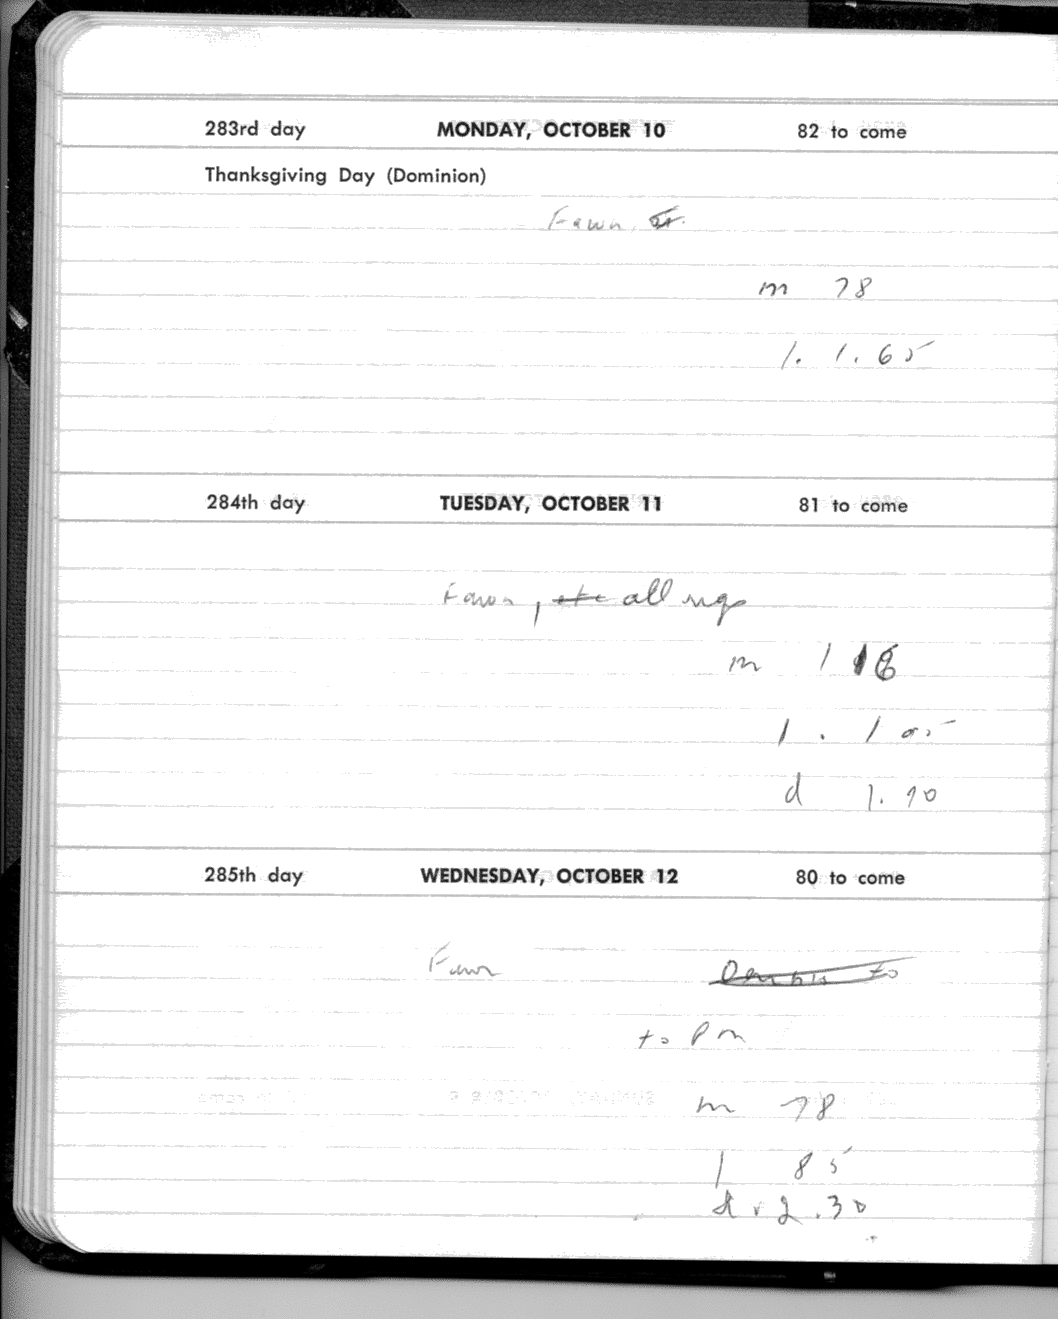 283rd day MONDAY, OCTOBER 10 82 to come
Thanksgiving Day (Dominion)
Fawn,
m 78
l. 1.65
284th day TUESDAY, OCTOBER 11 81 to come
Fawn, all
m 1 16
l . 1 05
d 1.90
285th day WEDNESDAY, OCTOBER 12 80 to come
Fawn Dennis to
to PM
m 78
l 85
d . 2.30